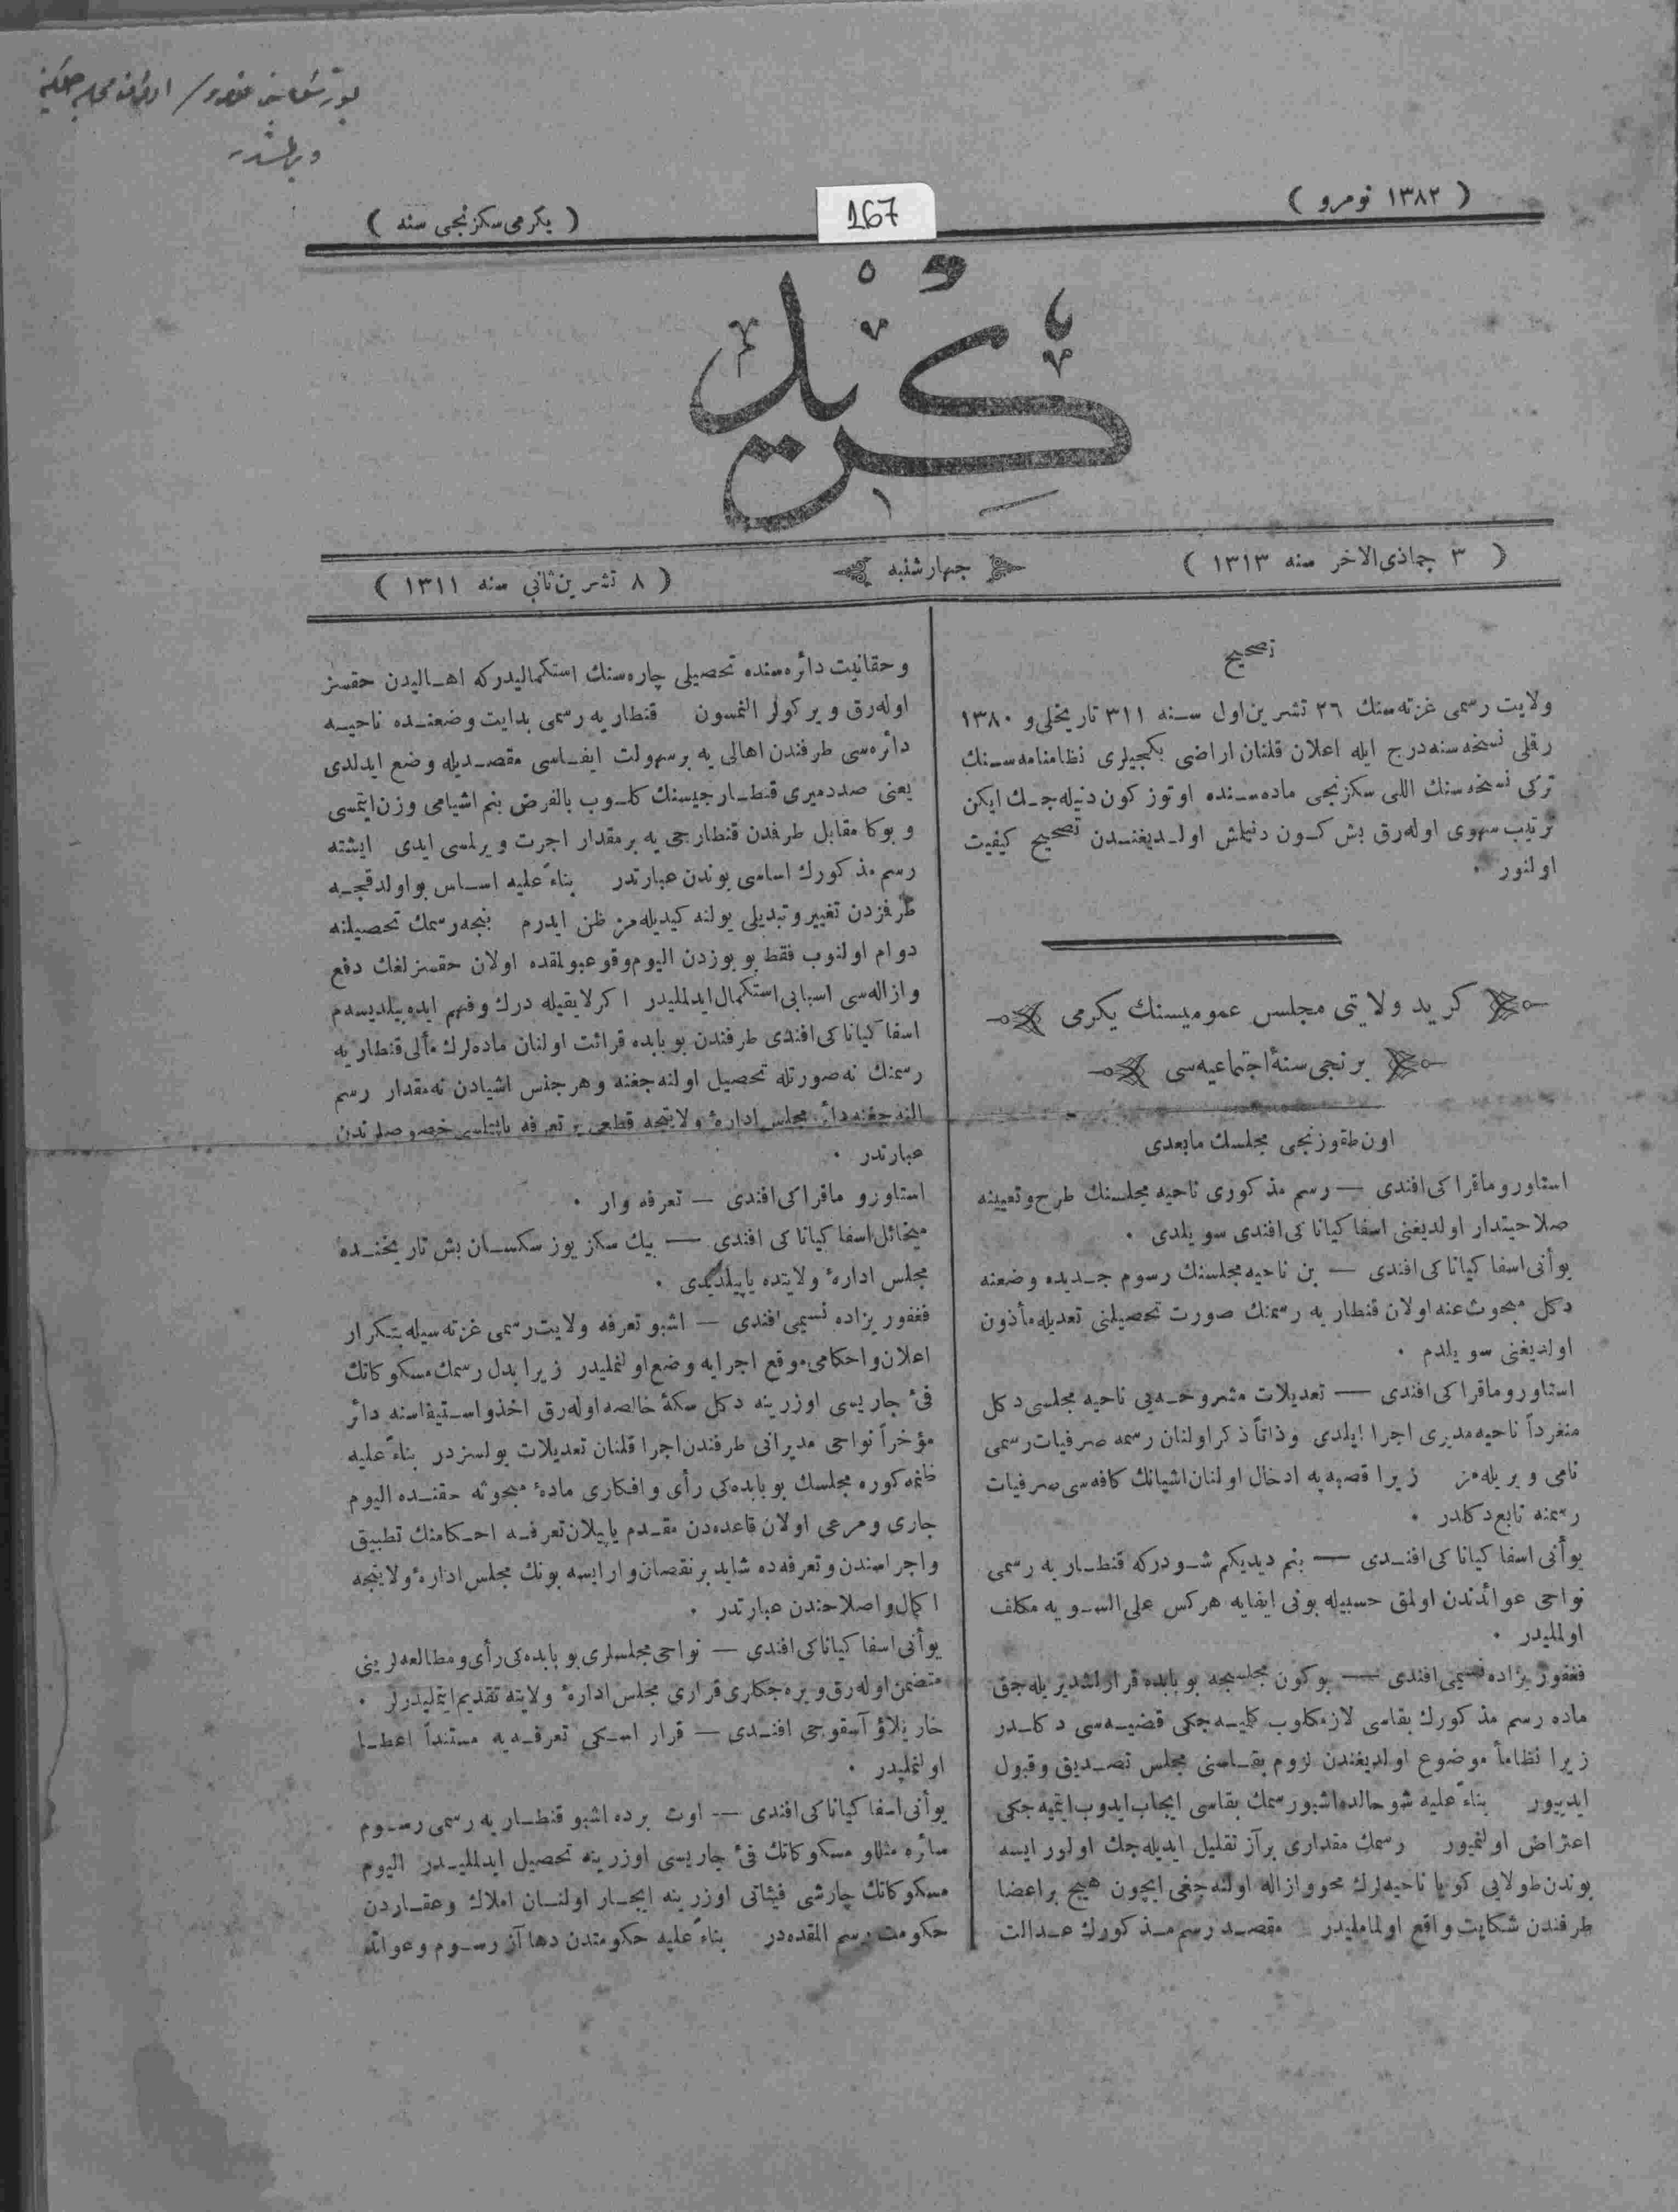 ( ١٣٨٢ نومرو )
167
( يكرمى سكزنجى سنه )
كريد
( ٣ جماذى الاخر سنه ١٣١٣ )
جهارشنبه
( ٨ تشرين ثانى سنه ١٣١١ )
تصحيح
ولايت رسمى غزته سنك ٢٦ تشرين اول سـنه ٣١١ تاريخلى و ١٣٨٠
رقلى نسخه سنه درج ايله اعلان قلنان اراضى بكجيلرى نظامنامه سـنك
تركى نسخه سنك اللى سكزنجى ماده سـنده اوتوز كون دنيله جـك ايكن
ترتيب سهوى اوله رق بش كـون دنيلمش اولـديغنـدن تصحيح كيفيت
اولنور ٠
كريد ولايتى مجلس عموميسنك يكرمى
برنجى سنۀ اجتماعيه سى
اون طقوزنجى مجلسك مابعدى
استاورو ماقراكى افندى — رسم مذكورى ناحيه مجلسنك طرح و تعيينه
صلاحيتدار اولديغنى اسفاكياناكى افندى سويلدى ٠
يوأنى اسفاكياناكى افندى — بن ناحيه مجلسنك رسوم جـديده وضعنه
دكل مبحوث عنه اولان قنطاريه رسمنك صورت تحصيلنى تعديله مأذون
اولديغنى سويلدم ٠
استاورو ماقراكى افندى — تعديلات مشروحـه يى ناحيه مجلسى دكل
منفرداً ناحيه مديرى اجرا ايلدى وذاتاً ذكر اولنان رسمه صرفيات رسمى
نامى ويريله مز زيرا قصبه يه ادخال اولنان اشيانك كافه سى صرفيات
رسمنه تابع دكلدر ٠
يوأنى اسفاكياناكى افنـدى — بنم ديديكم شـودركه قنطـاريه رسمى
نواحى عوائدندن اولمق حسبيله بونى ايفايه هركس على السـويه مكلف
اولمليدر ٠
فغفوريزاده نسيمى افندى — بوكون مجلسجه بو بابده قرارلشديريله جق
ماده رسم مذكورك بقاسى لازمكلوب كليـه جكى قضيـه سى دكلـدر
زيرا نظاماً موضوع اولديغندن لزوم بقـاسنى مجلس تصـديق وقبول
ايدييور بناءً عليه شو حالده اشبو رسمك بقاسى ايجاب ايدوب ايتميه جكى
اعتراض اولنميور رسمك مقدارى برآز تقليل ايديله جك اولور ايسه
بوندن طولايى كويا ناحيه لرك محو وازاله اولنه جغى ايچون هيچ براعضا
طرفندن شكايت واقع اولماملیدر مقصـد رسم مـذكورك عـدالت
وحقانيت دائره سنده تحصيلى چاره سنك استكماليدركه اهـاليدن حقسز
اوله رق ويركولر النمسون قنطاريه رسمى بدايت وضعنـده ناحيـه
دائره سى طرفندن اهالى يه برسهولت ايفـاسى مقصـديله وضع ايدلدى
يعنى صددميرى قنطـارجيسنك كلـوب بالفرض بنم اشيامى وزن ايتمسى
وبوكا مقابل طرفدن قنطارجى يه برمقدار اجرت ويرلمسى ايدى ايشته
رسم مذكورك اساسى بوندن عبارتدر بناءً عليه اسـاس بو اولدقجـه
طرفزدن تغيير وتبديلى يولنه كيديله مز ظن ايدرم بنجه رسمك تحصيلنه
دوام اولنوب فقط بو يوزدن اليوم وقوعبولمقده اولان حقسزلغك دفع
وازاله سى اسبابى استكمال ايدلمليدر اكر لايقيله درك وفهم ايده بيلديسه م
اسفاكياناكى افندى طرفندن بو بابده قرائت اولنان ماده لرك مآلى قنطاريه
رسمنك نه صورتله تحصيل اولنه جغنه وهر جنس اشيادن نه مقدار رسم
النه جغنه دائر مجلس ادارۀ ولايتجه قطعى بر تعرفه ياپلمسى خصوصلرندن
عبارتدر ٠
استاورو ماقراكى افندى — تعرفه وار ٠
ميخائل اسفاكياناكى افندى — بيك سكز يوز سكسـان بش تاريخنـده
مجلس ادارۀ ولايتده ياپيلديدى ٠
فغفوريزاده نسيمى افندى — اشبو تعرفه ولايت رسمى غزته سيله بتكرار
اعلان واحكامى موقع اجرايه وضع اولنمليدر زيرا بدل رسمك مسكوكاتك
فئ جاريسى اوزرينه دكل سكۀ خالصه اوله رق اخذ واسـتيفاسنه دائر
مؤخراً نواحى مديرانى طرفندن اجرا قلنان تعديلات يولسزدر بناءً عليه
ظنمه كوره مجلسك بو بابده كى رأى وافكارى مادۀ مبحوثه حقنـده اليوم
جارى ومرعى اولان قاعده دن مقـدم ياپيلان تعرفـه احـكامنك تطبيق
واجراسندن وتعرفه ده شايد برنقصان وار ايسه بونك مجلس ادارۀ ولايتجه
اكمال واصلاحندن عبارتدر ٠
يوأنى اسفاكياناكى افندى — نواحى مجلسلرى بو بابده كى رأى ومطالعه لرينى
متضمن اوله رق ويره جكلرى قرارى مجلس ادارۀ ولايته تقديم ايتمليدرلر ٠
خاريلاؤ آسقوجى افنـدى — قرار اسـكى تعرفـه يه مستنداً اعطـا
اولنمليدر ٠
يوأنى اسفاكياناكى افندى — اوت برده اشبو قنطـاريه رسمى رسـوم
سائره مثللو مسكوكاتك فئ جاريسى اوزرينه تحصيل ايدلمليـدر اليوم
مسكوكاتك چارشى فيئاتى اوزرينه ايجـار اولنـان املاك وعقـاردن
حكومت رسم المقده در بناءً عليه حكومتدن دها آز رسـوم وعوائد